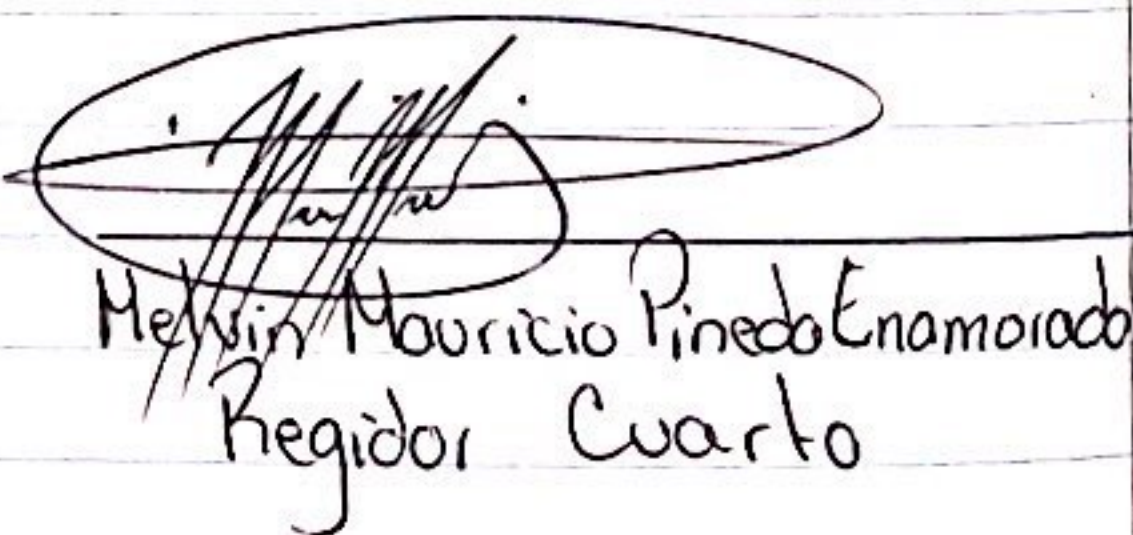 Melvin Mauricio Pinedo Enamorado
Regidor Cuarto